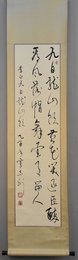 九日龍山飲黃花笑逐臣醉
看風落帽舞愛月留人
李白九日龍山飲